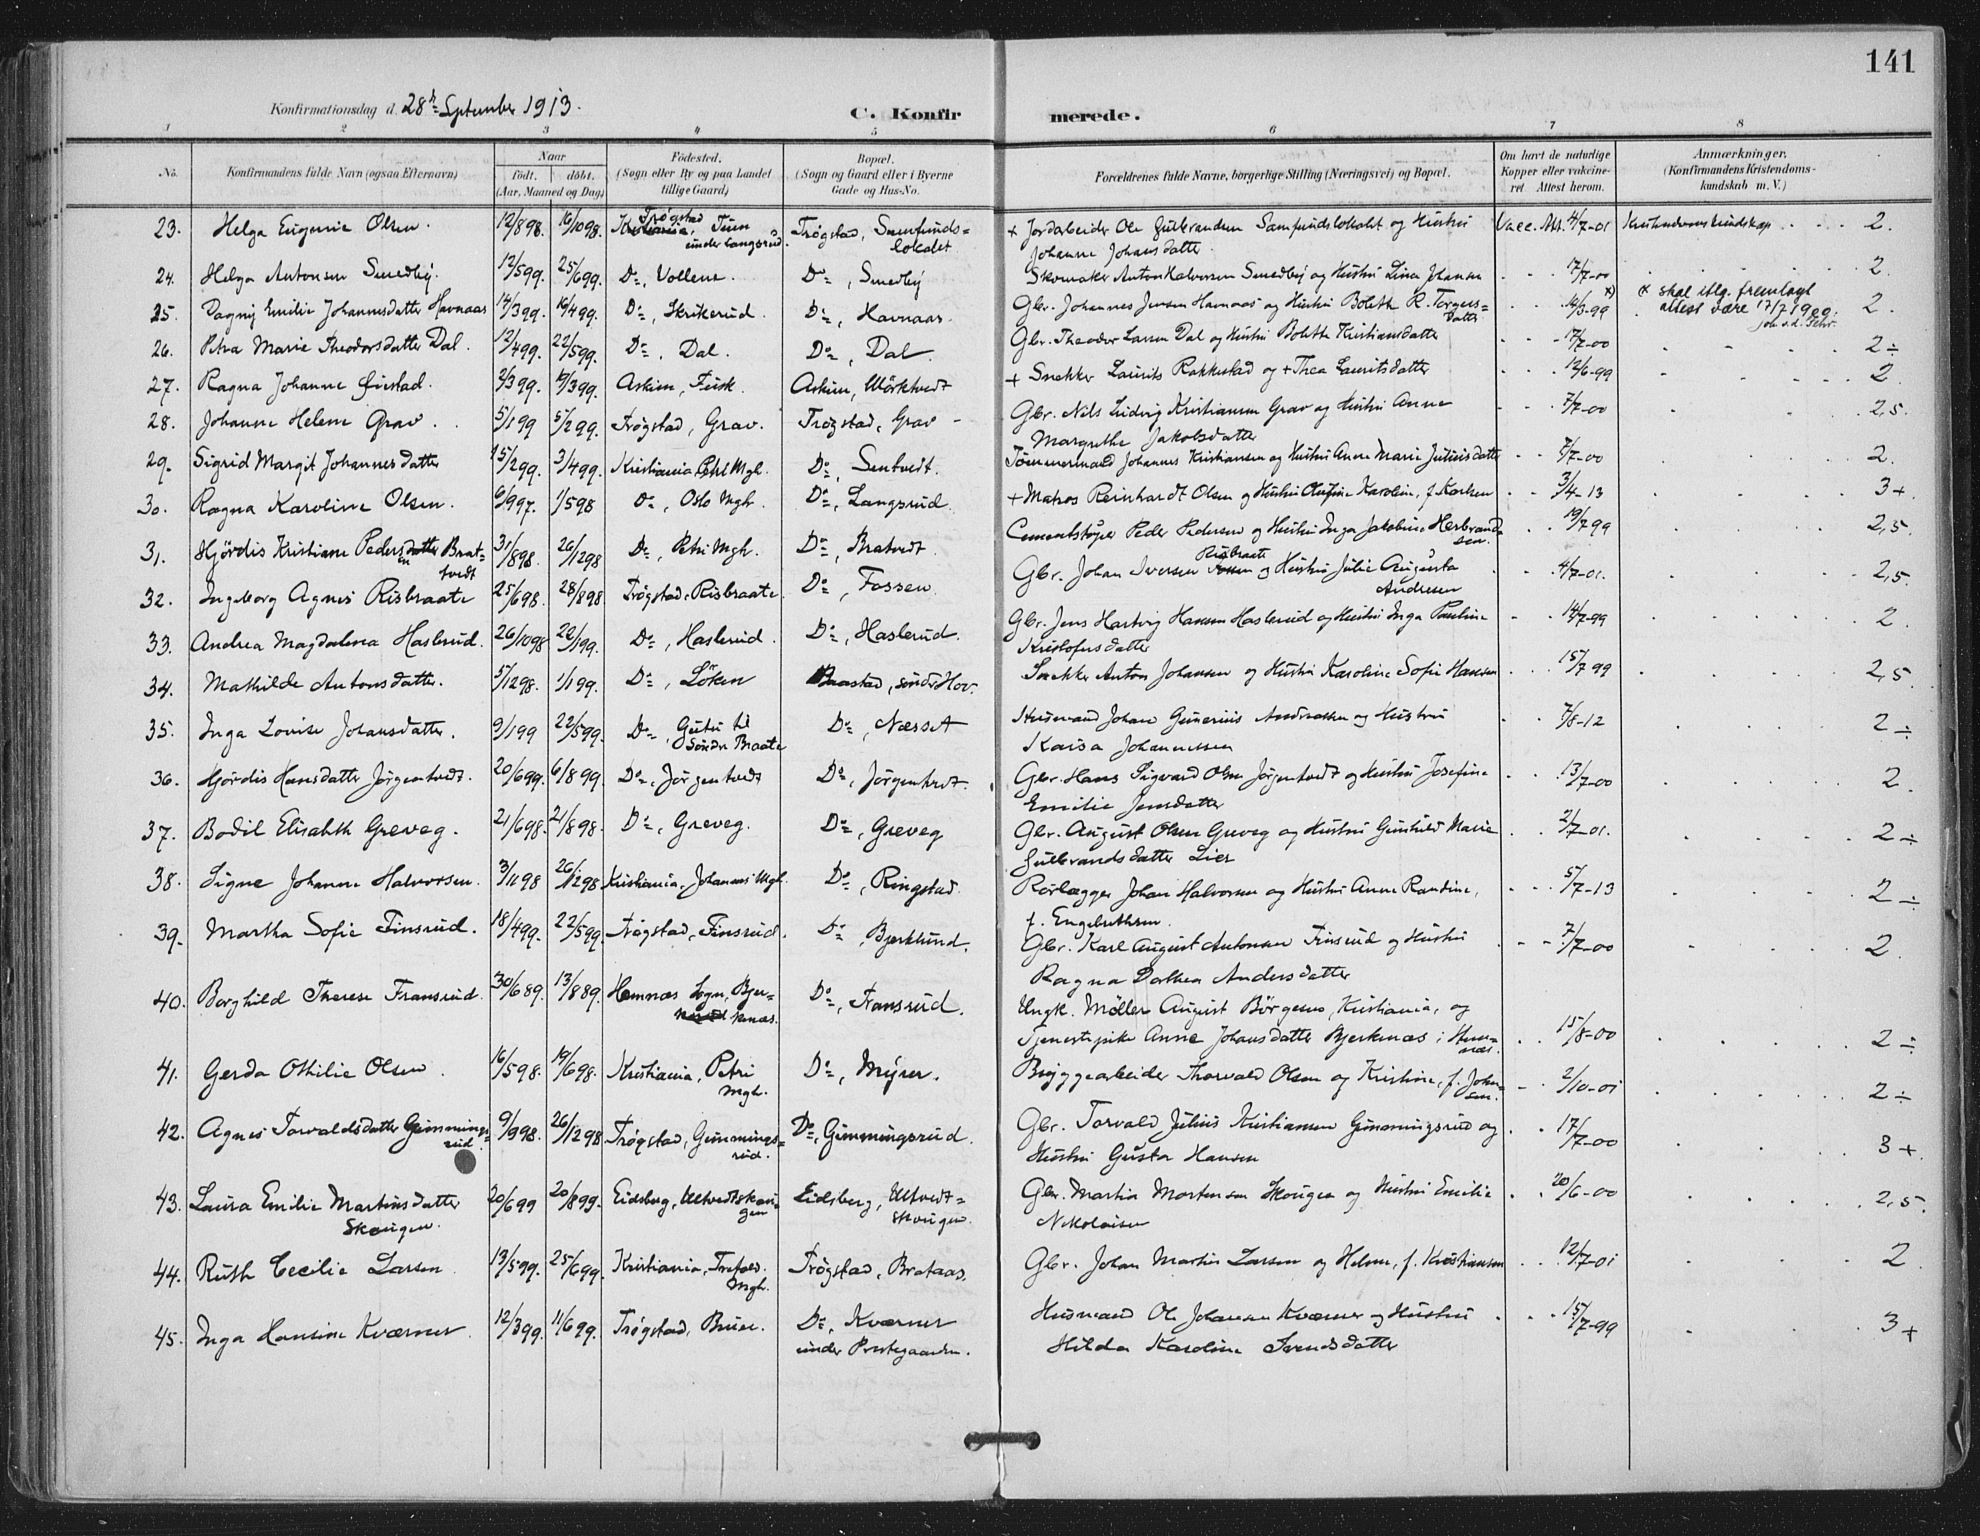 141
Konfirmationsdag d. 28de September 1913.
C. Konfirmerede.
1 2 3 4 5 6 7 8
No. Konfirmandens fulde Navn (ogsaa Efternavn) Naar födt. döbt. (Aar, Maaned og Dag) Födested. (Sogn eller By og paa Landet tillige Gaard) Bopæl. (Sogn og Gaard eller i Byerne Gade og Hus-No. Forældrenes fulde Navne, borgerlige Stilling (Næringsvei) og Bopæl. Om havt de naturlige Kopper eller vaccineret. Attest herom. Anmærkninger. (Konfirmandens Kristendomskundskab m. V.)
23. Helga Eugenie Olsen. 12/8 98. 16/10 98. Trögstad under Langsrud. Trögstad, Samfundslokalet + Jordarbeider Ole Gulbrandsen Samfundslokalet og Hustru Johanne Johansdatter Vacc. Att. 4/7-01 Kristendomskundskap . . . 2.
24. Helga Antonsen Smedby. 12/5 99. 25/6 99. Do, Vollene. Do, Smedby Skomaker Anton Halvorsen Smedby og Hustru Lina Hansen 17/7-00 2.
25. Dagny Emilie Johannesdatter Havnaas 14/3 99. 16/4 99. Do, Skrikerud. Do, Havnaas. Gbr. Johannes Jensen Havnaas og Hustru Bolette R. Torgersdatter 14/3-99 x) x skal iflg. fremlagt attest være 17/7 1900. 2.
26. Petra Marie Theodorsdatter Dal. 12/4 99. 22/5 99. Do, Dal. Do, Dal. Gbr. Theodor Larsen Dal og Hustru Bolette Kristiansdatter 17/7-00 2 ÷
27. Ragna Johanne Öirstad. 3/3 99. Askim, Fusk. Askim, Mörktvedt + Snekker Laurits Rakkestad og + Thea Lauritsdatter 12/6-99 2.
28. Johanne Helene Grav. 5/1 99 5/2 99. Trögstad, Grav. Trögstad, Grav Gbr. Nils Ludvig Kristiansen Grav og Hustru Anne Margrethe Jakobsdatter 7/7-00 2,5.
29. Sigrid Margit Johannesdatter 15/2 99. 3/4 99. Kristiania, Petri Mgh. Do, Sentvedt. Tömmermand Johannes Kristiansen og Hustru Anne Marie Juliusdatter 7/7-00 2.
30. Ragna Karoline Olsen. 6/9 97. 1/5 98 Do, Oslo Mgh. Do, Langsrud. + Matros Reinhardt Olsen og Hustru Olufine Karoline, f. Karlsen 3/4-13 3+.
31. Hjördis Kristiane Pedersen Bratvedt 31/8 98. 26/12 98 Do, Petri Mgh. Do, Bratvedt. Cementstöper Peder Pedersen og Hustru Inga Jakobine Herbrandsen. 19/7 99 2,5.
32. Ingeborg Agnes Risbraate 25/6 98. 28/8 98. Trögstad, Risbraate. Do, Fossen. Gbr. Johan Iversen Risbraate og Hustru Julie Augusta Andresen 4/7-01. 2,5.
33. Andrea Magdalena Haslerud. 26/10 98 22/1 99. Do, Haslerud. Do, Haslerud. Gbr. Jens Hartvig Hansen Haslerud og Hustru Inga Pauline Kristofersdatter 14/7-99 2.
34. Mathilde Antonsdatter. 5/12 98. 1/1 99. Do, Löken Baastad, söndre Hov. Snekker Anton Johansen og Hustru Karoline Sofie Hansen 15/7 99 2,5.
35. Inga Louise Johansdatter. 9/1 99 22/5 99. Do, Gutu til Söndre Braate Do, Næsset Husmand Johan Gunerius Andreassen og Hustru Kaisa Johannessen 7/8-12 2 ÷
36. Hjördis Hansdatter Jörgentvedt. 20/6 99. 6/8 99. Do, Jörgentvedt Do, Jörgentvedt. Gbr. Hans Sigvard Olsen Jörgentvedt og Hustru Josefine Emilie Jensdatter 13/7-00 2.
37. Bodil Elisabeth Greveg. 21/6 98. 21/8 98. Do, Greveg. Do, Greveg Gbr. August Olsen Greveg og Hustru Gunhild Marie Gulbrandsdatter Lier 2/7-01. 2 ÷
38. Signe Johanne Halvorsen. 3/11 98 26/12 98 Kristiania, Johannes Mgh. Do, Ringstad. Rörlægger Johan Halvorsen og Hustru Anne Randine, f. Engebrethsen. 5/7-13 2 ÷
39. Martha Sofie Finsrud. 18/4 99. 22/5 99. Trögstad, Finsrud. Do, Bjerklund. Gbr. Karl August Antonsen Finsrud og Hustru Ragna Dorthea Andersdatter 7/7-00 2.
40. Borghild Therese Fransrud. 30/6 89. 13/8 89. Hemnæs Sogn, Bjerkenæs. Do, Fransrud. Ungk. Möller August Börgesen, Kristiania, og Tjenestepike Anne Johansdatter Bjerkenæs i Hemnæs. 15/8-00 2 ÷
41. Gerda Othilie Olsen. 16/5 98. 19/6 98. Kristiania, Petri Mgh. Do, Myrer. Bryggearbeider Thorvald Olsen og Kristine, f. Johnsen. 2/10-01 2 ÷
42. Agnes Torvaldsdatter Gimmingsrud. 9/9 98. 26/12 98 Trögstad, Gimmingsrud. Do, Gimmingsrud. Gbr. Torvald Julius Kristiansen Gimmingsrud og Hustru Gusta Hansen 17/7-00 3+.
43. Laura Emilie Martinsdatter Skougen. 20/6 99 20/8 99. Eidsberg, Ultvedtskougen Eidsberg, Ultvedtskougen. Gbr. Martin Mortensen Skougen og Hustru Emilie Nikolaisen 20/6-00 2,5.
44. Ruth Cecilie Larsen 13/5 99. 25/6 99. Kristiania, Trefold. Mgh. Trögstad, Brataas. Gbr. Johan Martin Larsen og Helene, f. Kristiansen 12/7-01 2
45. Inga Hansine Kværner 12/3 99. 11/6 99. Trögstad, Bruer. Do, Kværner under Prestegaarden. Husmand Ole Johansen Kværner og Hustru Hilda Karoline Svendsdatter 15/7-99 3+